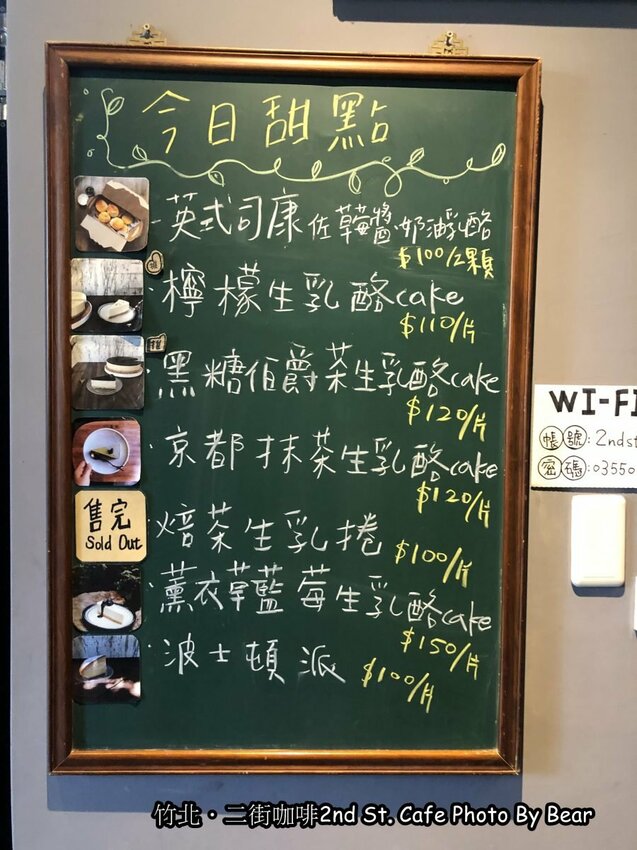 今日甜點
英式司康 佐草莓醬.奶油乳酪
$100/2顆
推
檸檬生乳酪cake
$110/片
推
黑糖伯爵茶生乳酪cake
$120/片
京都抹茶生乳酪cake
$120/片
售完
Sold Out
焙茶生乳捲 $100/片
薰衣草藍莓生乳酪cake
$150/片
波士頓派 $100/片
WI-FI
帳號:2ndst
密碼:03550
竹北・二街咖啡2nd St. Cafe Photo By Bear